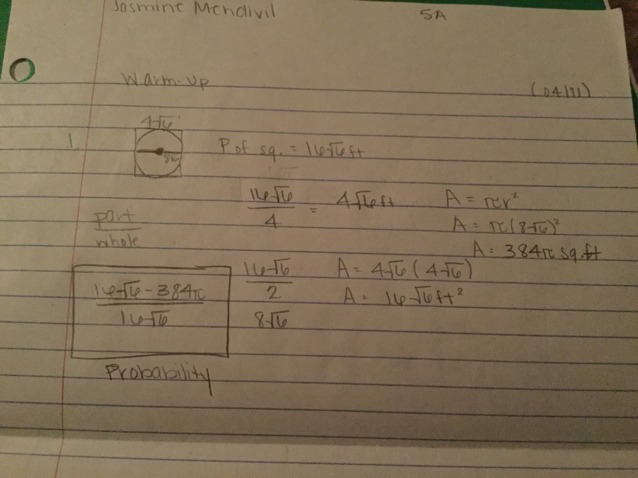 Jasmine Mendivil 5A
Warm-up (04/11)
4√6
1.
8√6
P of sq. = 16√6 ft
16√6 / 4 = 4√6 ft
A = πr²
A = π(8√6)²
A = 384π sq.ft
part / whole
16√6 / 2
8√6
A = 4√6 (4√6)
A = 16√6 ft²
16√6 - 384π / 16√6
Probability